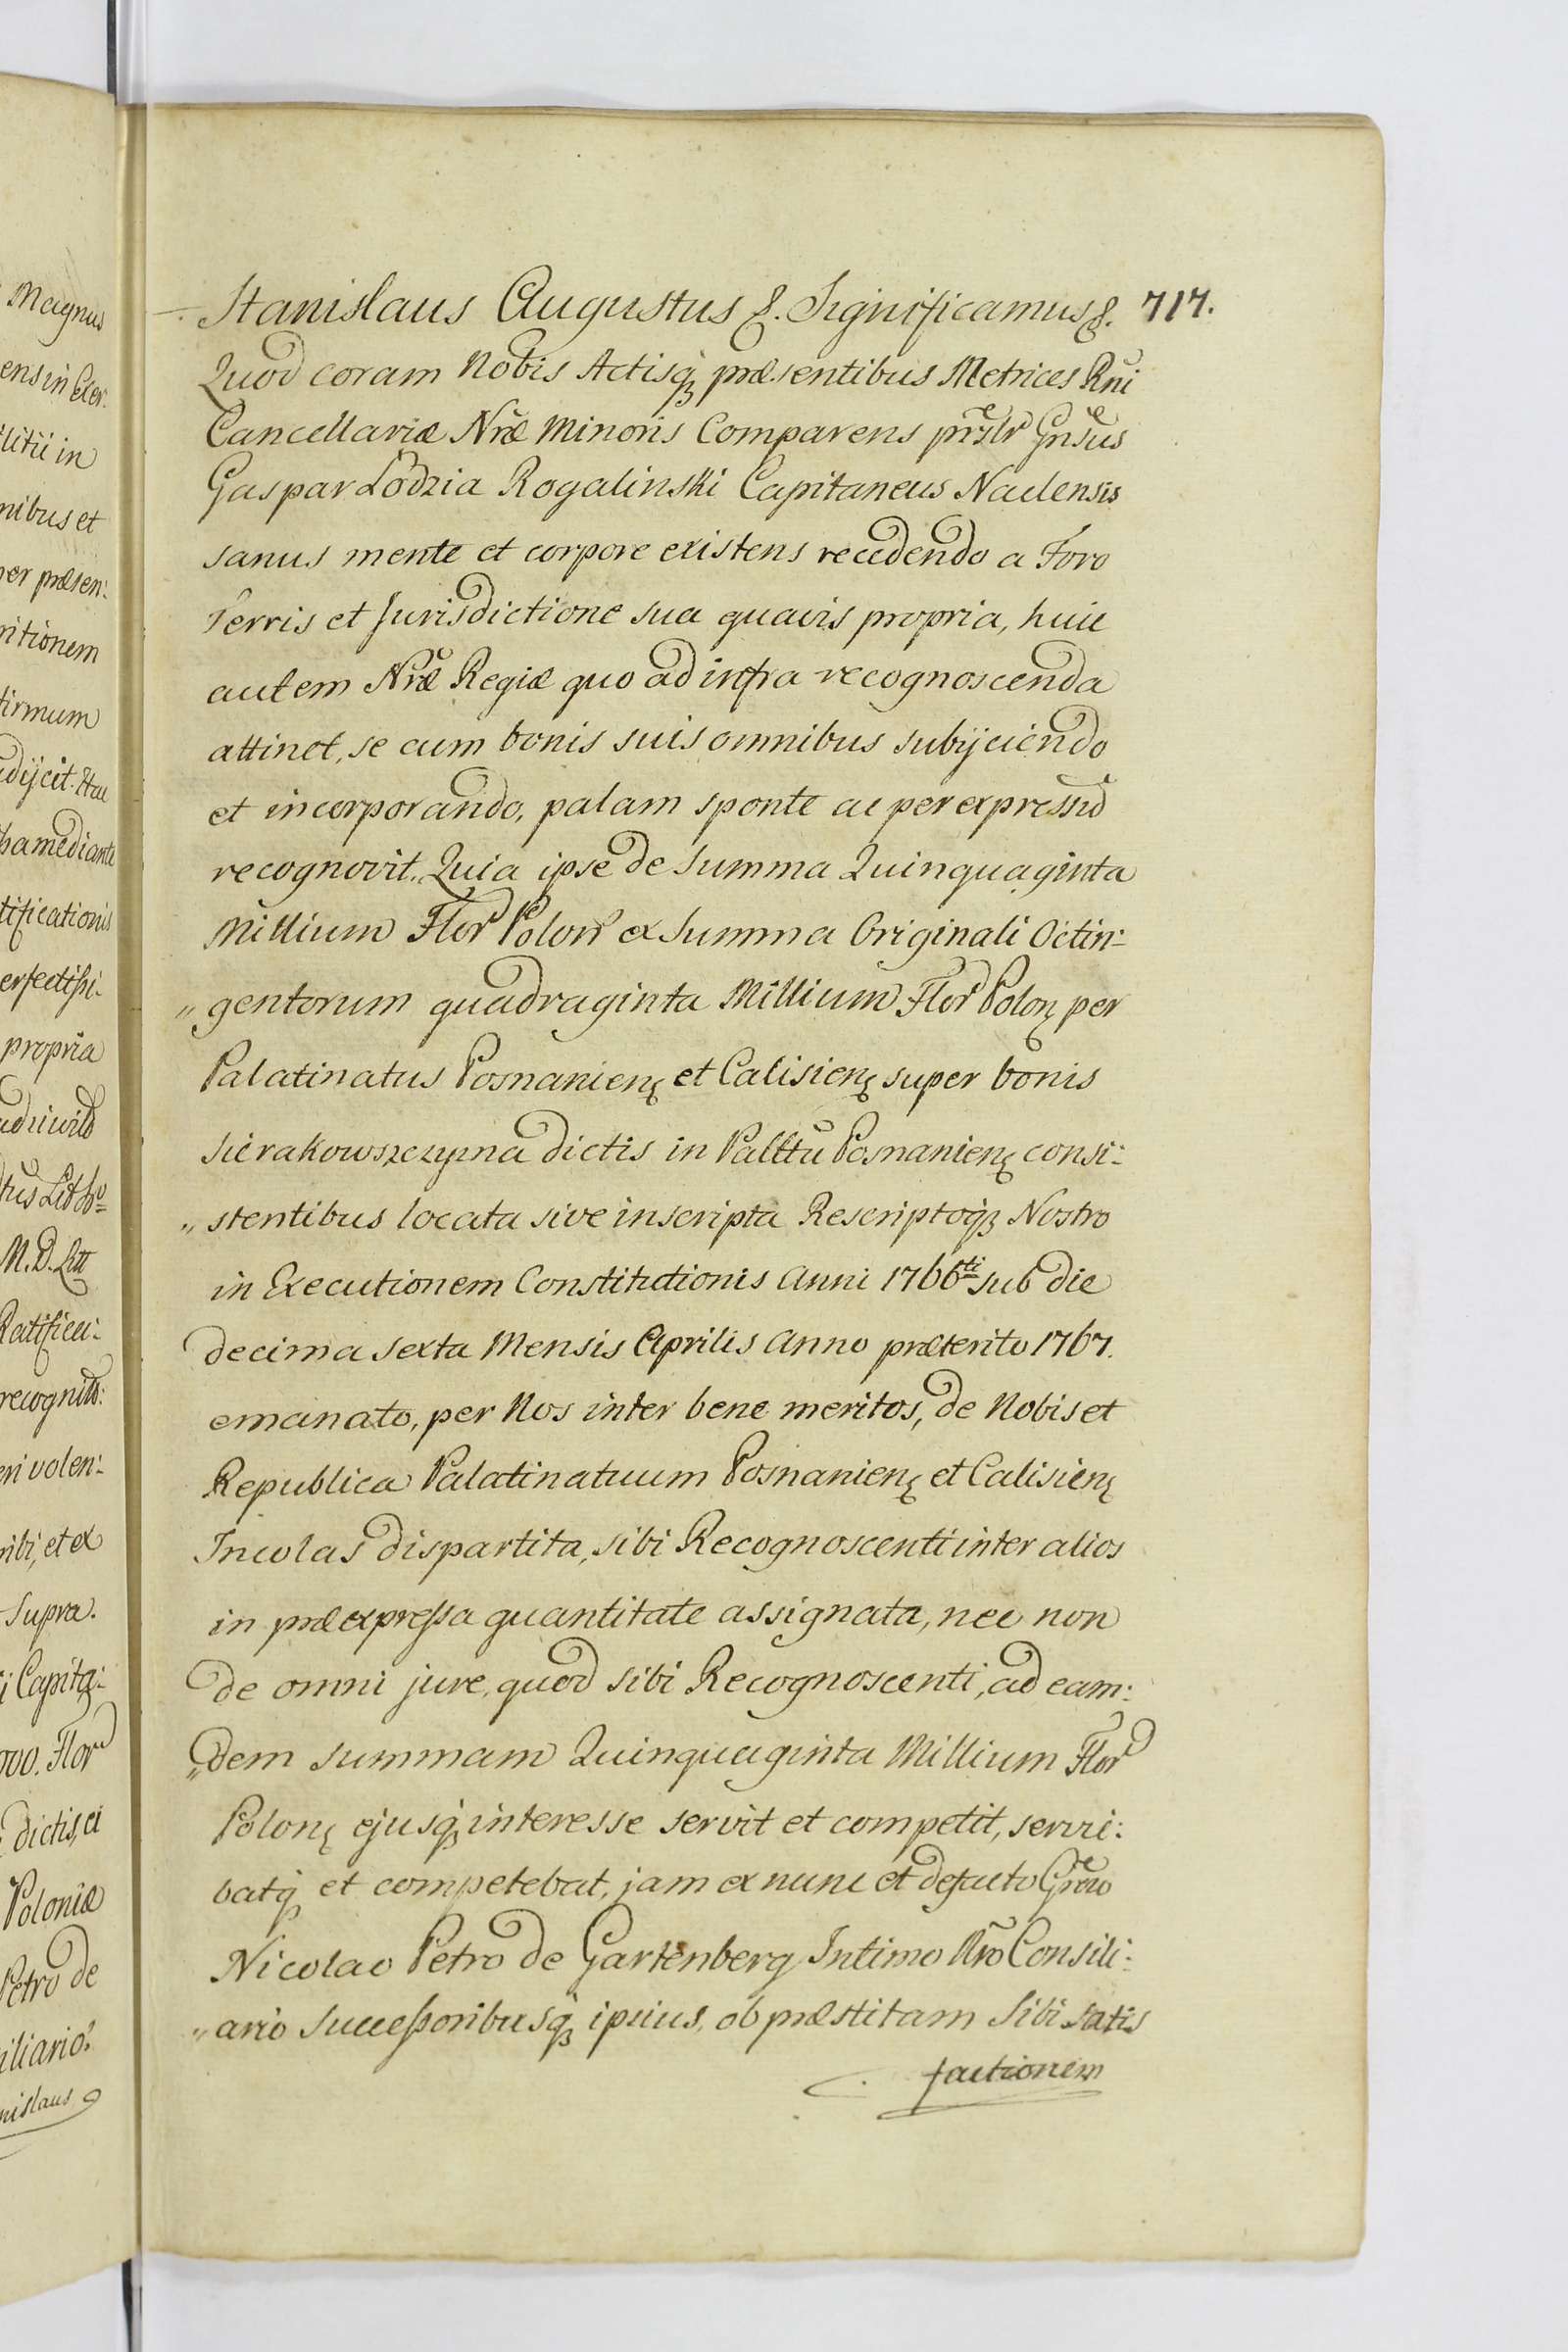 Magnus
ens in Exer:
litii in
nibus et
er præsen:
ritionem
firmum
dijcit. Hac
ba mediante
tificationis
erfectissi-
propria
tus Litho
M. D. Litt
Ratifica:
recognito:
eri volen:
ribi, et ex
Supra.
j Capita:
000. Flor
dictis, ei
Poloniæ
Petro de
iliario.
nislaus
Stanislaus Augustus &. Significamus &. 717.
Quod coram Nobis Actisq præsentibus Metrices Rni
Cancellariæ Nræ Minoris Comparens prslr Gnsus
Gaspar Lodzia Rogalinski Capitaneus Naclensis
sanus mente et corpore existens recedendo a Foro
Terris et Jurisdictione sua quavis propria, huic
autem Nræ Regiæ quo ad infra recognoscenda
attinet, se cum bonis suis omnibus subijciendo
et incorporando, palam sponte ac per expressu
recognovit. Quia ipse de Summa Quinquaginta
Millium Flor Polon ex Summa Originali Octin:
"gentorum quadraginta Millium Flor Polon per
Palatinatus Posnanien et Calisien super bonis
Sierakowszczyzna dictis in Pallttu Posnanien consi:
"stentibus locata sive inscripta Rescriptoq Nostro
in Executionem Constitutionis Anni 1766ti sub die
decima sexta Mensis Aprilis Anno præterito 1767.
emanato, per Nos inter bene meritos, de Nobis et
Republica Palatinatuum Posnanien et Calisien
Incolas dispartita, sibi Recognoscenti inter alios
in præexpressa quantitate assignata, nec non
de omni jure, quod sibi Recognoscenti, ad eam:
"dem summam Quinquaginta Millium Flor
Polon ejusq interesse servit et competit, servi:
batq et competebat, jam ex nunc et defacto Groso
Nicolao Petro de Gartenberg Intimo Nro Consili:
"ario Successoribusq ipsius, ob præstitam Sibi satis
factionem